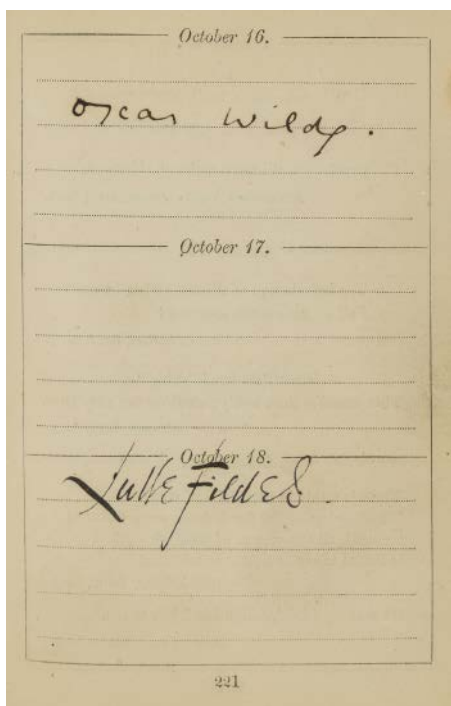 October 16.
Oscar Wilde.
October 17.
October 18.
Luke Fildes
221